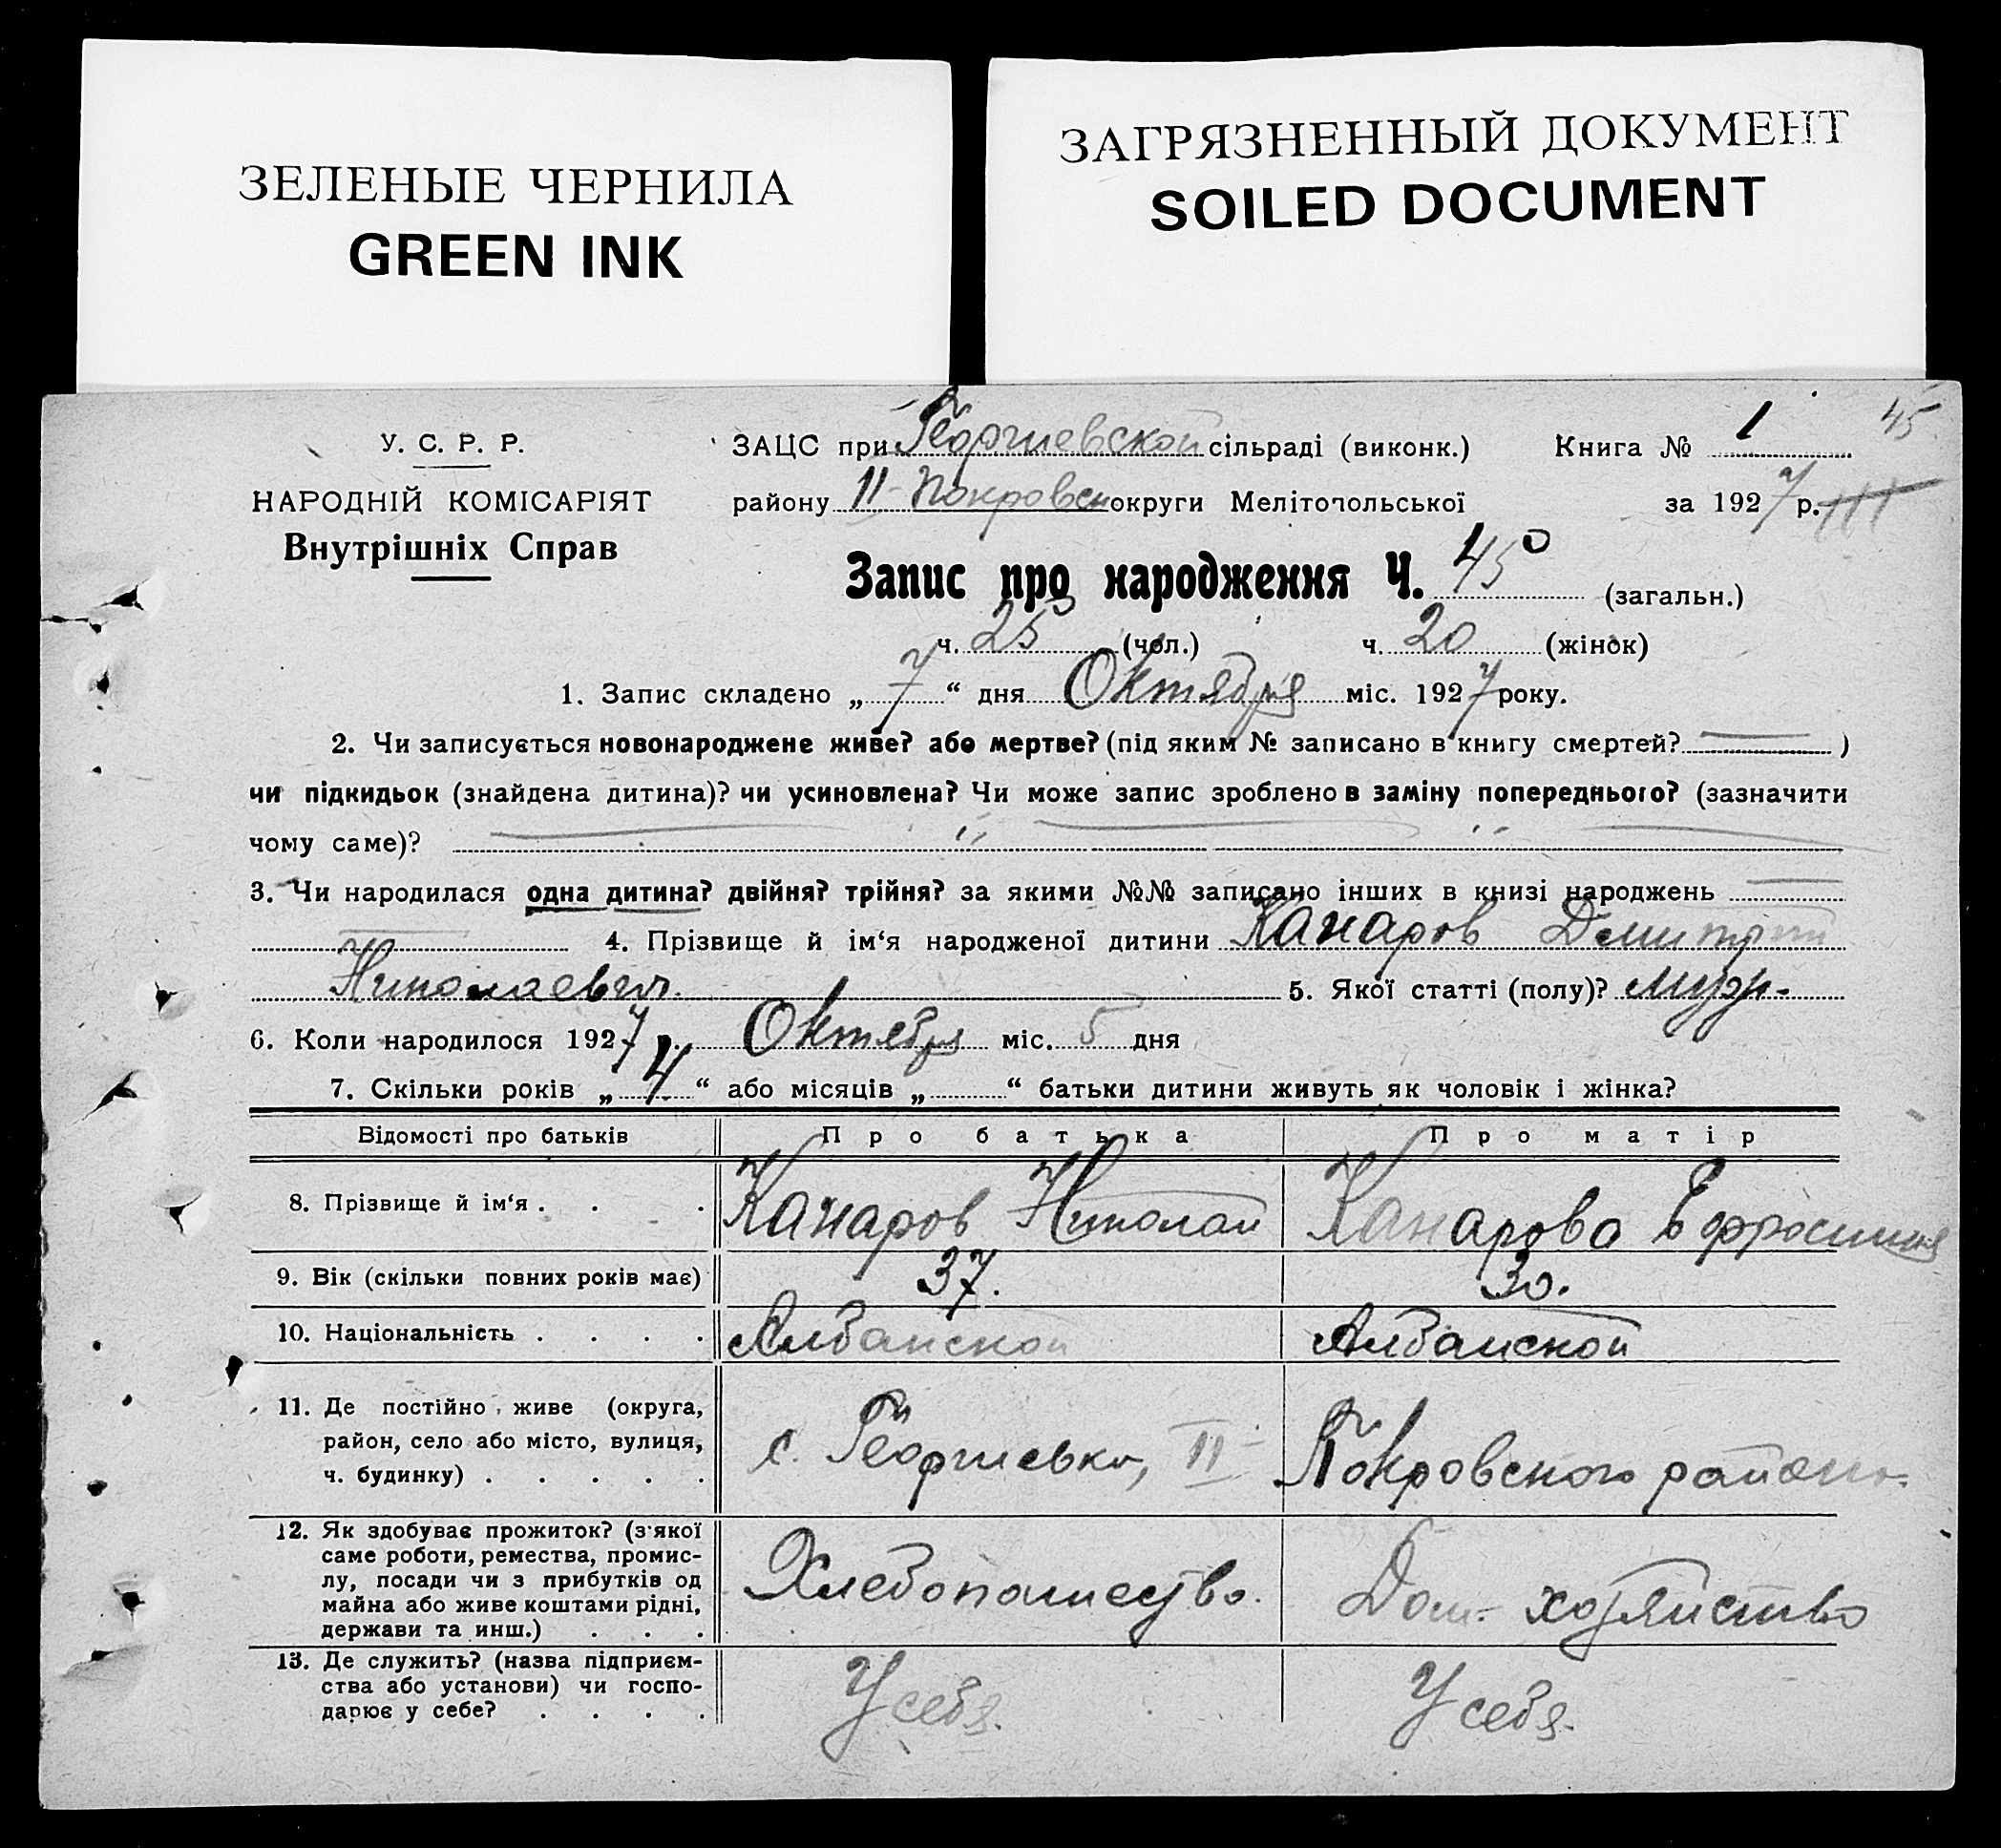 ЗЕЛЕНЫЕ ЧЕРНИЛА
GREEN INK
ЗАГРЯЗНЕННЫЙ ДОКУМЕНТ
SOILED DOCUMENT
У. С. Р. Р.
НАРОДНІЙ КОМІСАРІЯТ
Внутрішніх Справ
ЗАЦС при Георгиевской сільраді (виконк.) Книга № 1 45
району II-Покровск округи Мелітопольської за 1927 р.
Запис про народження Ч. 45 (загальн.)
ч. 25 (чол.) ч. 20 (жінок)
1. Запис складено „ 7 “ дня Октября міс. 1927 року.
2. Чи записується новонароджене живе? або мертве? (під яким № записано в книгу смертей? )
чи підкидьок (знайдена дитина)? чи усиновлена? Чи може запис зроблено в заміну попереднього? (зазначити
чому саме)?
3. Чи народилася одна дитина? двійня? трійня? за якими №№ записано інших в книзі народжень
4. Прізвище й ім‘я народженої дитини Канаров Дмитрий
Николаевич. 5. Якої статті (полу)? муж-
6. Коли народилося 1927 р. Октября міс. 5 дня
7. Скільки років „ 4 “ або місяців „ “ батьки дитини живуть як чоловік і жінка?
Відомості про батьків Про батька Про матір
8. Прізвище й ім‘я . . . Канаров Николай Канарова Ефросиния
9. Вік (скільки повних років має) 37. 30.
10. Національність . . . . Албанской Албанской
11. Де постійно живе (округа,
район, село або місто, вулиця,
ч. будинку) . . . . . с. Георгиевка, II Покровского района.
12. Як здобуває прожиток? (з'якої
саме роботи, ремества, промис-
лу, посади чи з прибутків од
майна або живе коштами рідні,
держави та инш.) . . . Хлебопашество. Дом. хозяйство
13. Де служить? (назва підприєм-
ства або установи) чи госпо-
дарює у себе? . . . . У себя. У себя.